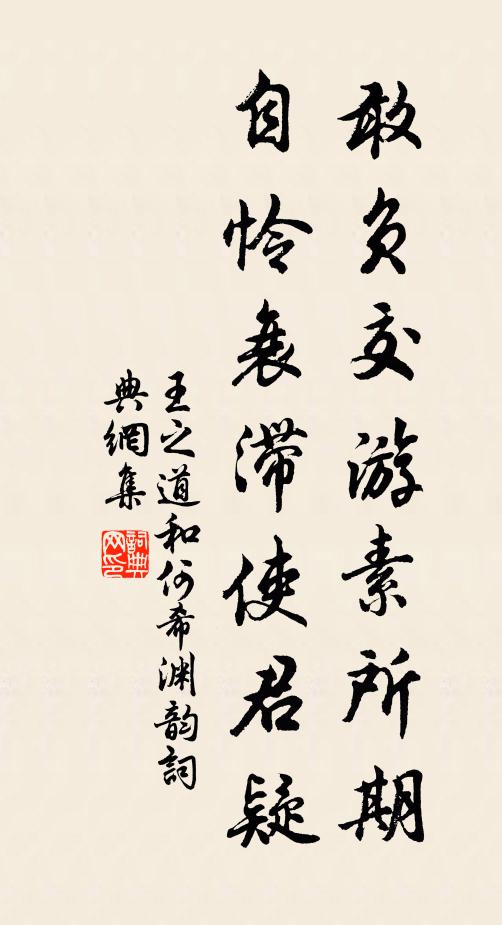 敢负交游素所期
自怜衰滞使君疑
王之道和何希渊韵詞
典網集
詞典网印